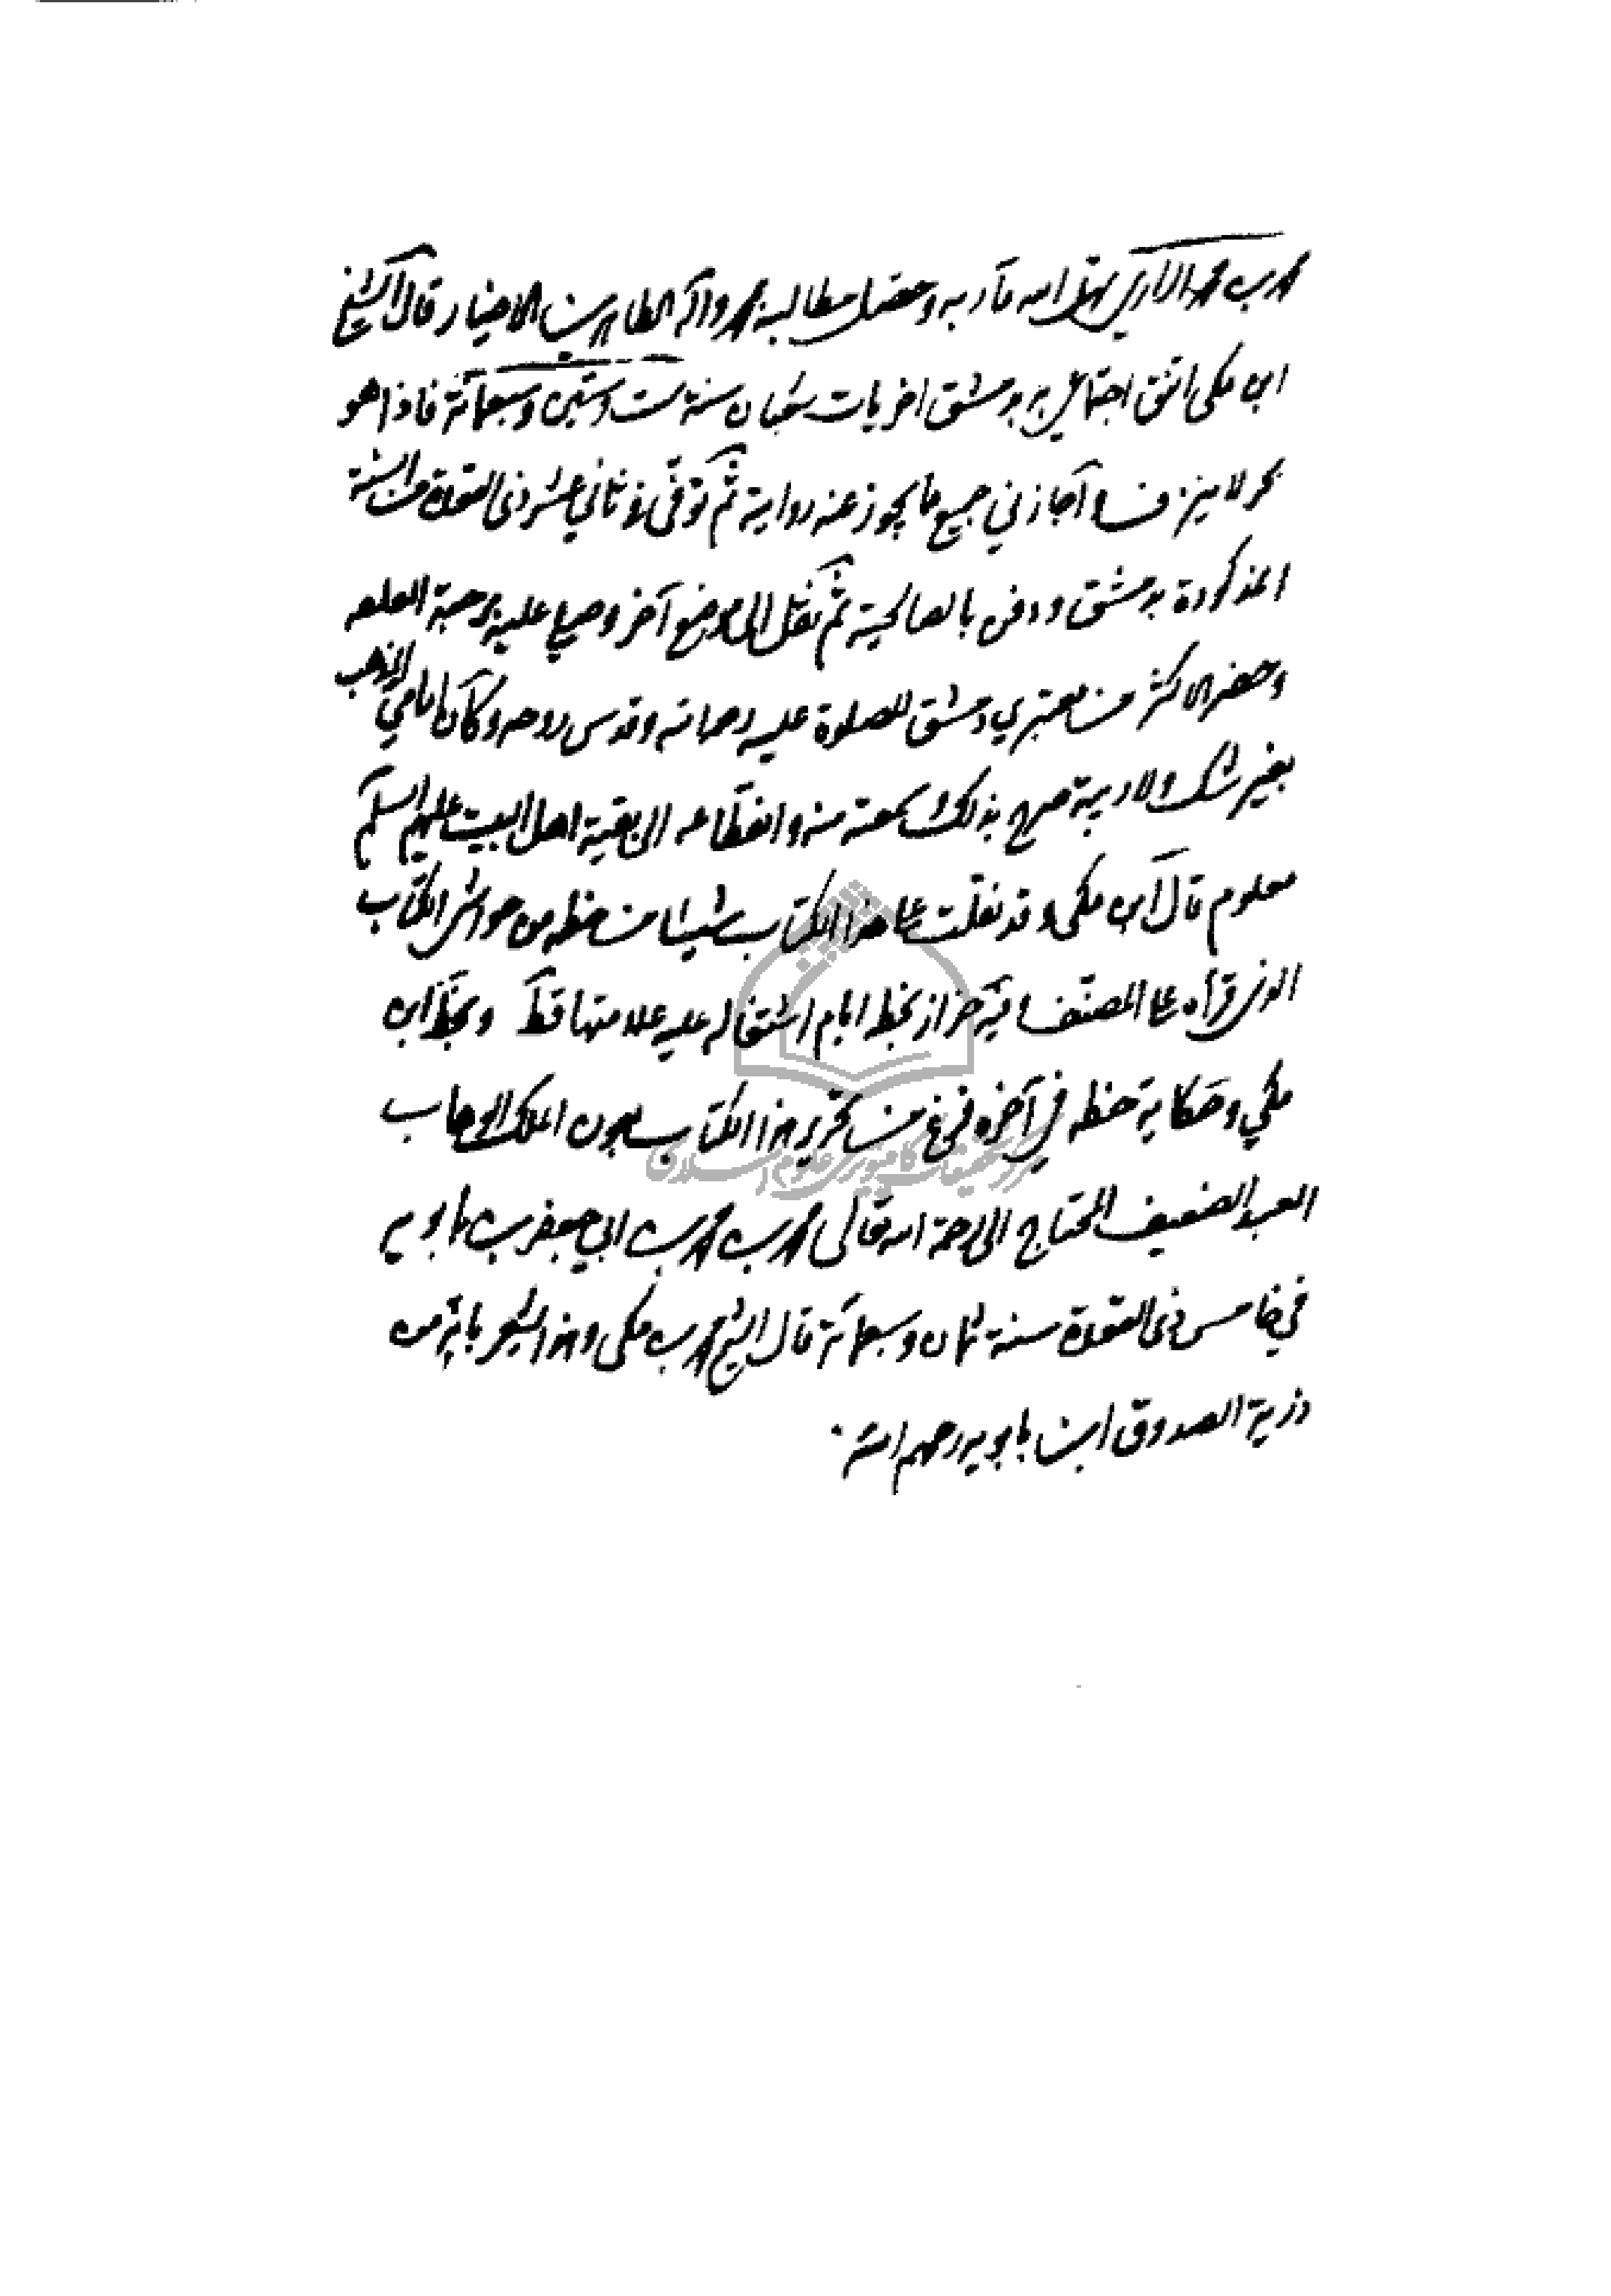 محمد بن محمد الرازي بلغه الله مآربه وحصل مطالبه بمحمد وآله الطاهرين الاخيار قال الشيخ
ابن مكي اتفق اجتماعي به بدمشق اخريات شعبان سنة ست وستين وسبعمائة فاذا هو
بحر لا ينزف واجازني جميع ما يجوز عنه روايته ثم توفي في ثاني عشر ذي القعدة من السنة
المذكورة بدمشق ودفن بالصالحية ثم نقل الى موضع آخر وصلي عليه برحبة القلعه
وحضر الاكثر من معتبري دمشق للصلوة عليه رحمه الله وقدس روحه وكان امامي المذهب
بغير شك ولا ريبة صرح بذلك وسمعته منه وانقطاعه الى بقية اهل البيت عليهم السلم
معلوم قال ابن مكي وقد نقلت على هذا الكتاب شيئا من خطه من حواشي الكتاب
الذي قرأه على المصنف وفيه حزاز بخطه ايام اشتغاله عليه علامتها قط وبخط ابن
مكي وحكاية خطه في آخره فرغ من تحرير هذا الكتاب بعون الملك الوهاب
العبد الضعيف المحتاج الى رحمة الله تعالى محمد بن محمد بن ابي جعفر بن بابويه
في خامس ذي القعدة سنة ثمان وسبعمائة قال الشيخ محمد بن مكي وهذا يشعر بانه من
ذرية الصدوق ابن بابويه رحمهم الله
مركز تحقيقات كامپيوترى علوم اسلامى